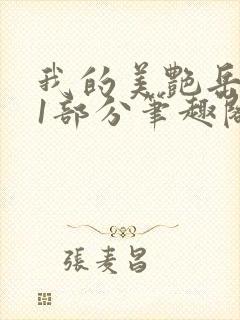 我的美艷岳
1部分筆趣閣
張麦昌